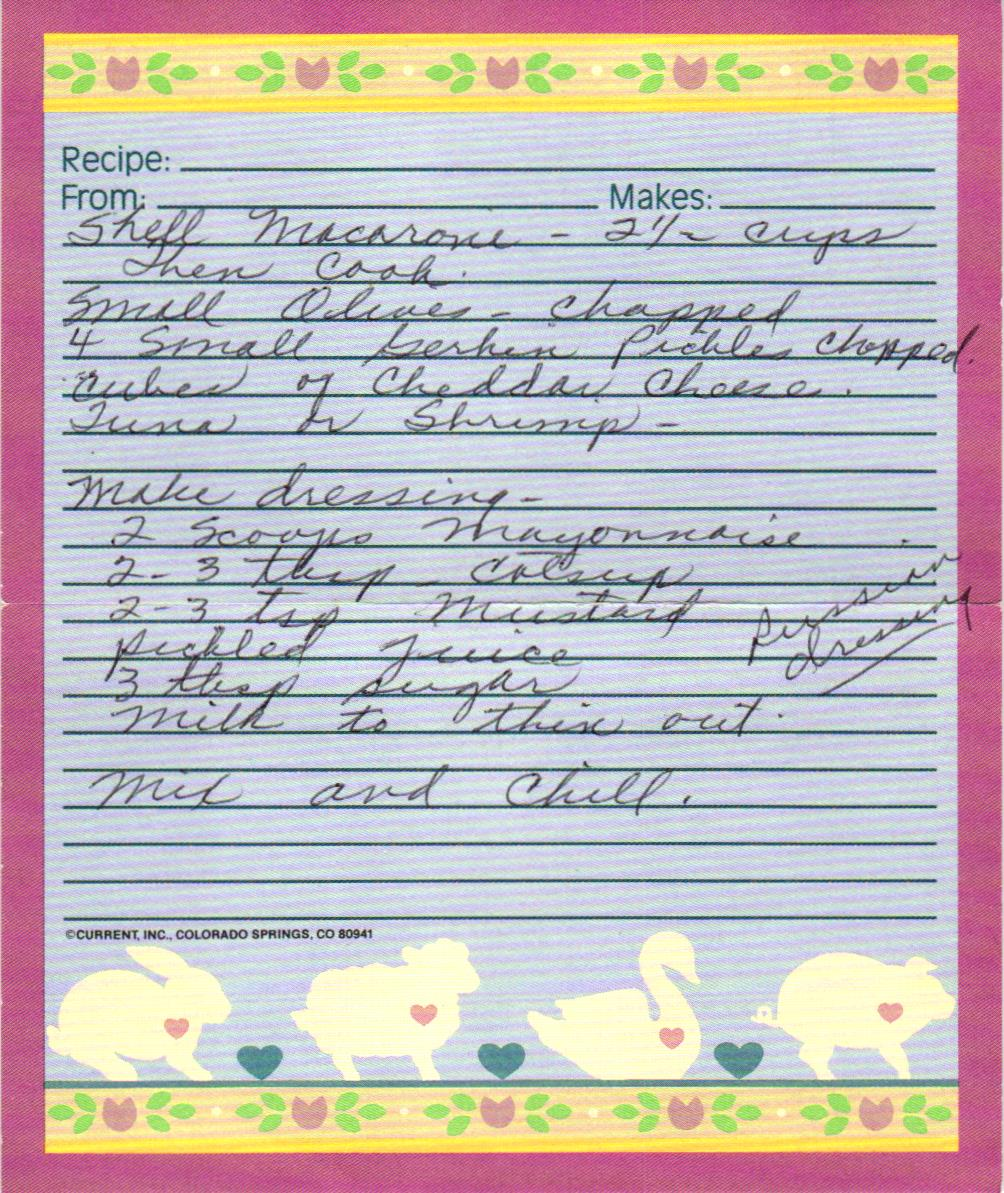 Recipe:
From: Makes:
Shell Macaroni - 2 1/2 cups
Then Cook.
Small Olives - chopped
4 Small Gerkin Pickles chopped.
cubes of Cheddar Cheese.
Tuna or Shrimp -
Make dressing -
2 Scoops Mayonnaise
2-3 tbsp - Catsup
2-3 tsp Mustard
pickled juice
3 tbsp sugar
Milk to thin out.
Russian
dressing
Mix and Chill.
©CURRENT, INC., COLORADO SPRINGS, CO 80941